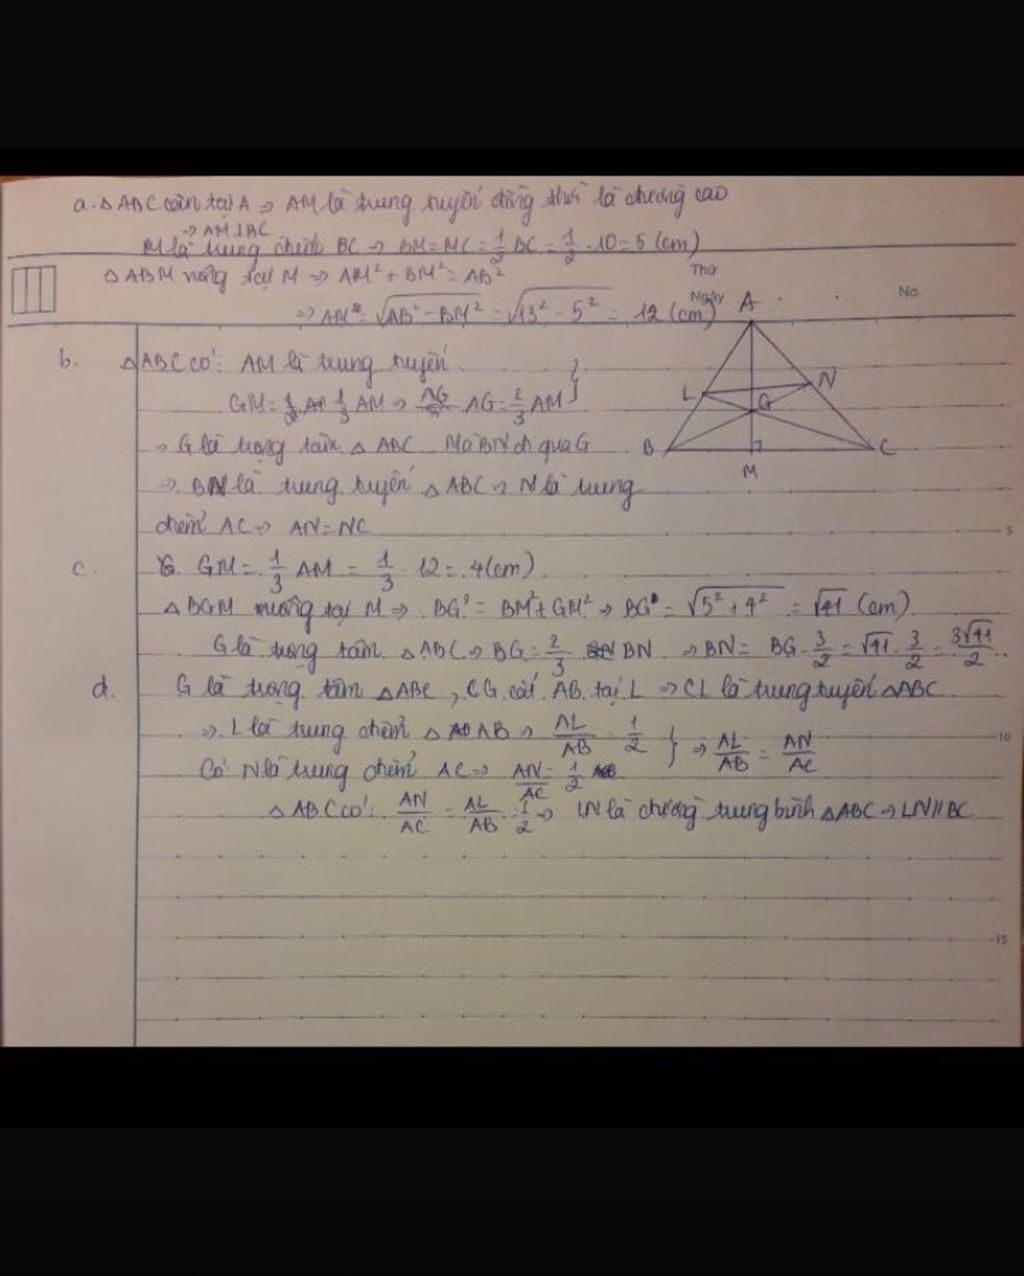 a. △ABC cân tại A ⇒ AM là trung tuyến đồng thời là đường cao
⇒ AM⊥BC
M là trung điểm BC ⇒ BM = MC = 1/2 BC = 1/2 . 10 = 5 (cm)
△ABM vuông tại M ⇒ AM² + BM² = AB²
Thứ
Ngày
No.
⇒ AM = √(AB² - BM²) = √(13² - 5²) = 12 (cm)
A
L
N
G
B
C
M
b. △ABC có: AM là trung tuyến
GM = 1/3 AM ⇒ AG = 2/3 AM }
⇒ G là trọng tâm △ABC. Mà BN đi qua G
⇒ BN là trung tuyến △ABC ⇒ N là trung
điểm AC ⇒ AN = NC
5
c. GM = 1/3 AM = 1/3 . 12 = 4 (cm)
△BGM vuông tại M ⇒ BG² = BM² + GM² ⇒ BG = √(5² + 4²) = √41 (cm)
G là trọng tâm △ABC ⇒ BG = 2/3 BN ⇒ BN = BG . 3/2 = √41 . 3/2 = 3√41/2
d. G là trọng tâm △ABC, CG cắt AB tại L ⇒ CL là trung tuyến △ABC
⇒ L là trung điểm AB ⇒ AL/AB = 1/2 } ⇒ AL/AB = AN/AC
10
Có N là trung điểm AC ⇒ AN/AC = 1/2
△ABC có: AN/AC = AL/AB = 1/2 ⇒ LN là đường trung bình △ABC ⇒ LN // BC
15